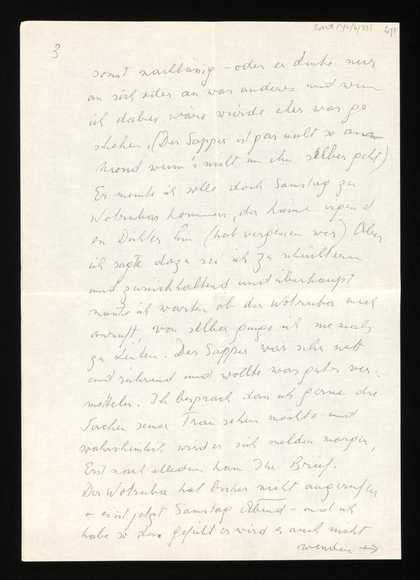 3
sonst nachlässig – oder er denke nur
an sich oder an was anderes und wenn
ich dabei wäre würde eher was ge
schehen. (Der Sapper ist gar nicht so
wenn's nicht um ihn selber geht)
Er meinte ich solle doch Samstag zu
Wotrubas kommen, da käme irgend
ein Dichter hin (hab vergessen wer) Aber
ich sagte dazu sei ich zu schüchtern
und zurückhaltend und überhaupt
möchte ich warten ob der Wotruba mich
anruft, von selber ginge ich niemals
zu Leuten. Der Sapper war sehr nett
und rührend und wollte was gutes ver-
mitteln. Ich besprach dass ich gerne die
Sachen seiner Frau sehen möchte und
wahrscheinlich wird er sich melden morgen,
Erst nach alledem kam Ihr Brief.
Der Wotruba hat bisher nicht angerufen
– es ist jetzt Samstag Abend – und ich
habe so das Gefühl er wird es auch nicht
wenden →